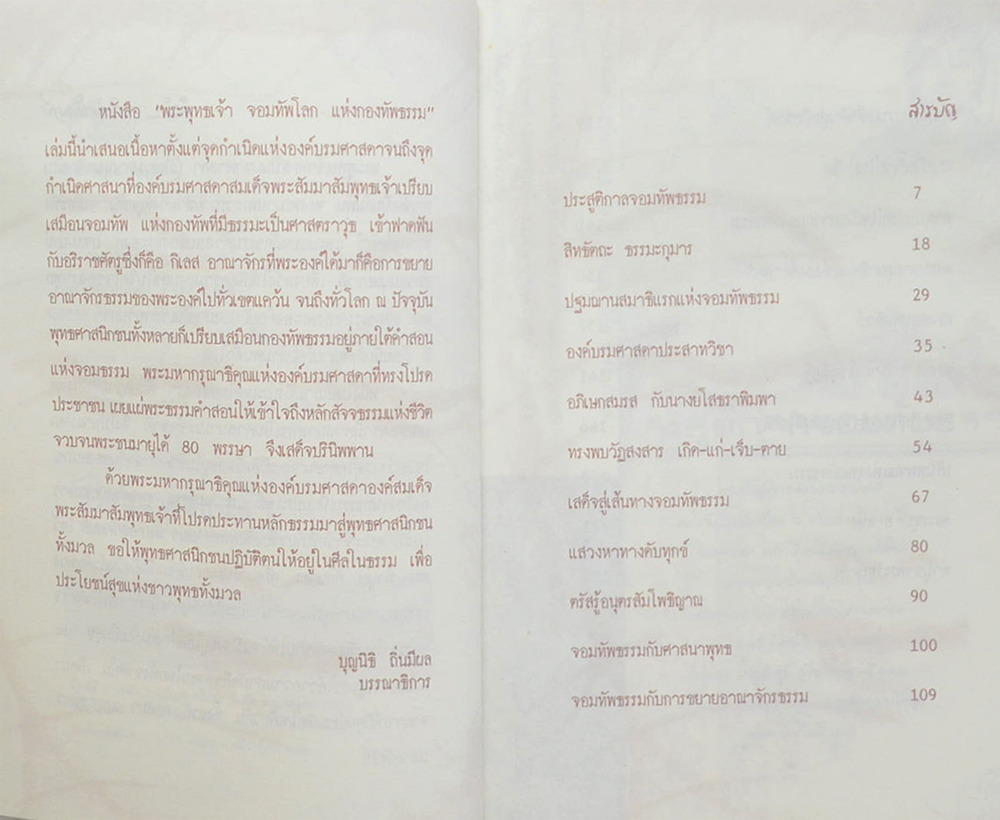 หนังสือ "พระพุทธเจ้า จอมทัพโลก แห่งกองทัพธรรม"
เล่มนี้นำเสนอเนื้อหาตั้งแต่จุดกำเนิดแห่งองค์บรมศาสดาจนถึงจุด
กำเนิดศาสนาที่องค์บรมศาสดาสมเด็จพระสัมมาสัมพุทธเจ้าเปรียบ
เสมือนจอมทัพ แห่งกองทัพที่มีธรรมะเป็นศาสตราวุธ เข้าฟาดฟัน
กับอริราชศัตรูซึ่งก็คือ กิเลส อาณาจักรที่พระองค์ได้มาก็คือการขยาย
อาณาจักรธรรมของพระองค์ไปทั่วเขตแคว้น จนถึงทั่วโลก ณ ปัจจุบัน
พุทธศาสนิกชนทั้งหลายก็เปรียบเสมือนกองทัพธรรมอยู่ภายใต้คำสอน
แห่งจอมธรรม พระมหากรุณาธิคุณแห่งองค์บรมศาสดาที่ทรงโปรด
ประชาชน เผยแผ่พระธรรมคำสอนให้เข้าใจถึงหลักสัจจธรรมแห่งชีวิต
จวบจนพระชนมายุได้ 80 พรรษา จึงเสด็จปรินิพพาน
ด้วยพระมหากรุณาธิคุณแห่งองค์บรมศาสดาองค์สมเด็จ
พระสัมมาสัมพุทธเจ้าที่โปรดประทานหลักธรรมมาสู่พุทธศาสนิกชน
ทั้งมวล ขอให้พุทธศาสนิกชนปฏิบัติตนให้อยู่ในศีลในธรรม เพื่อ
ประโยชน์สุขแห่งชาวพุทธทั้งมวล
บุญนิธิ ถิ่นมีผล
บรรณาธิการ
สารบัญ
ประสูติกาลจอมทัพธรรม 7
สิทธัตถะ ธรรมะกุมาร 18
ปฐมฌานสมาธิแรกแห่งจอมทัพธรรม 29
องค์บรมศาสดาประสาทวิชา 35
อภิเษกสมรส กับนางยโสธราพิมพา 43
ทรงพบวัฏสงสาร เกิด-แก่-เจ็บ-ตาย 54
เสด็จสู่เส้นทางจอมทัพธรรม 67
แสวงหาทางดับทุกข์ 80
ตรัสรู้อนุตรสัมโพธิญาณ 90
จอมทัพธรรมกับศาสนาพุทธ 100
จอมทัพธรรมกับการขยายอาณาจักรธรรม 109